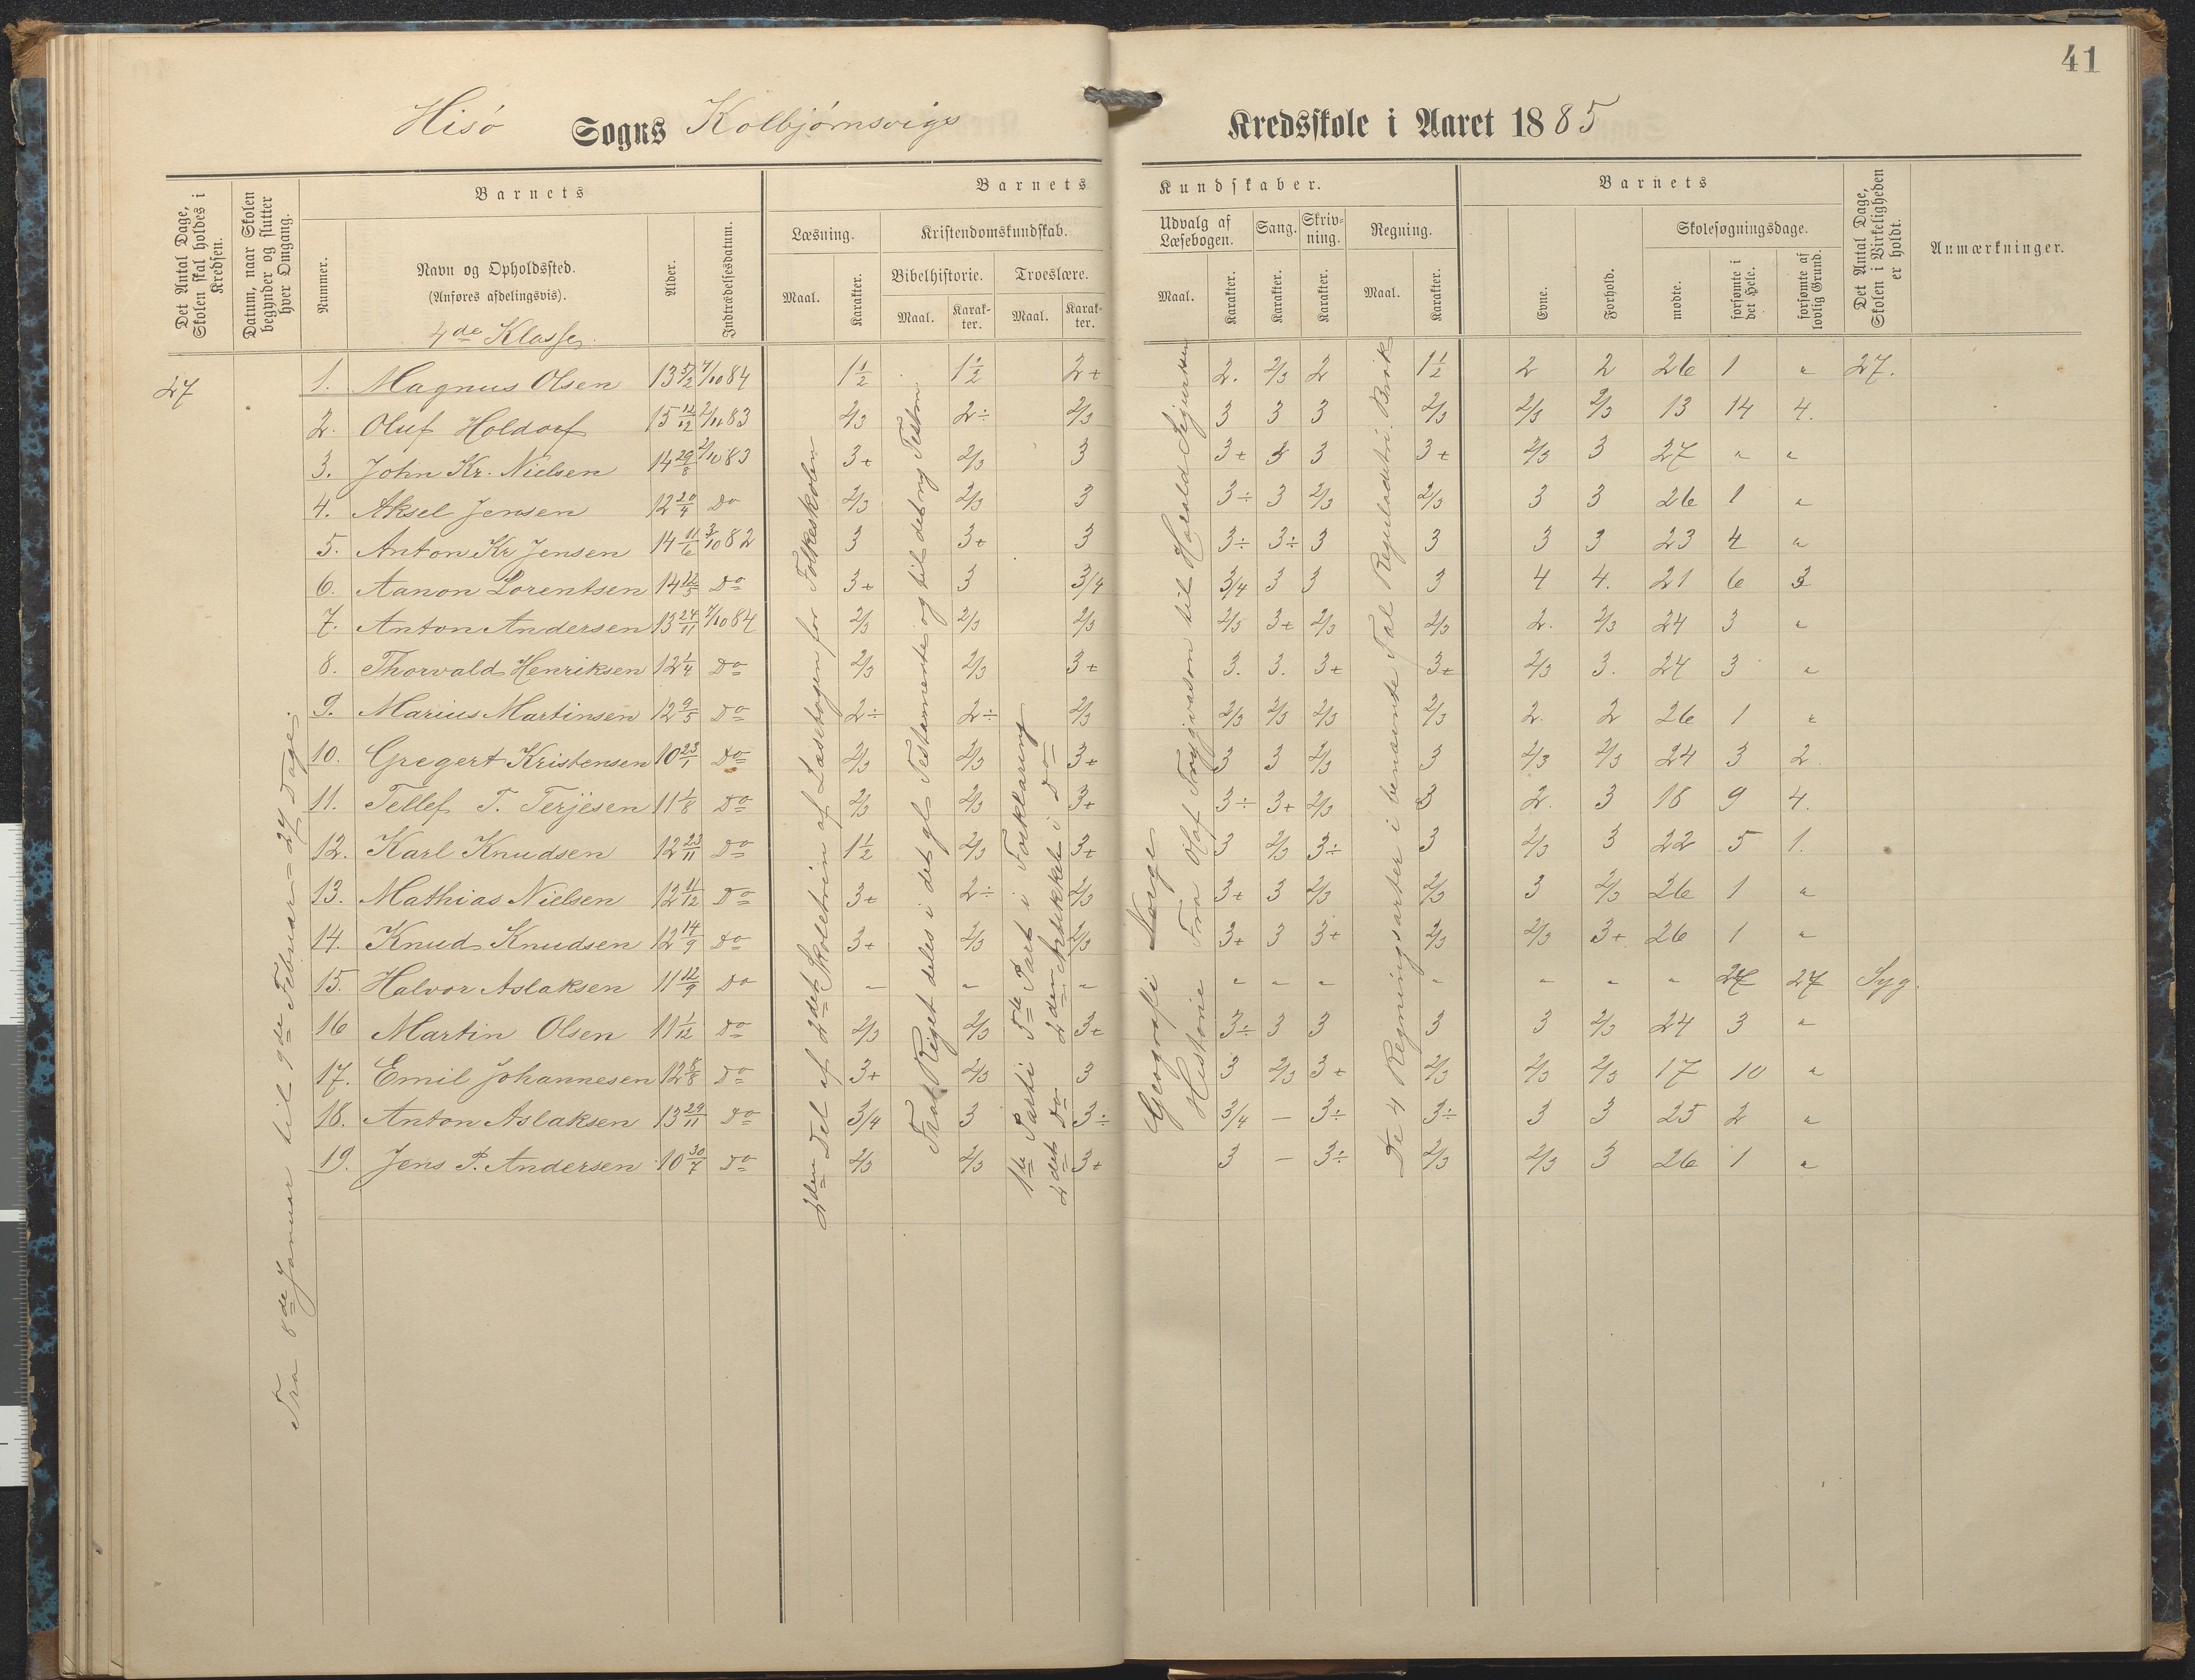 41
Hisö Sogns Kolbjörnsvigs Kredsskole i Aaret 1885
Det Antal Dage, Skolen skal holdes i Kredsen.
Datum, naar Skolen begynder og slutter hver Omgang.
Barnets
Nummer.
Navn og Opholdssted.
(Anføres afdelingsvis).
4de Klasse.
Alder.
Indtrædelsesdatum.
Barnets Kundskaber.
Læsning.
Maal. Karakter.
Kristendomskundskab.
Bibelhistorie. Troeslære.
Maal. Karakter. Maal. Karakter.
Udvalg af Læsebogen. Sang. Skrivning. Regning.
Maal. Karakter. Karakter. Karakter. Maal. Karakter.
Barnets
Evne. Forhold.
Skolesøgningsdage.
mødte. forsømte i det Hele. forsømte af lovlig Grund.
Det Antal Dage, Skolen i Virkeligheden er holdt.
Anmærkninger.
27
1. Magnus Olsen 13 5/2 7/10 84 1½ 1½ 2+ 2. 2/3 2 1½ 2 2 26 1 " 27.
2. Oluf Holdorf 15 14/12 2/11 83 2/3 2÷ 2/3 3 3 3 2/3 2/3 2/3 13 14 4.
3. John Kr. Nielsen 14 29/8 2/10 83 3+ 2/3 3 3+ 3 3 3+ 2/3 3 27 " "
4. Aksel Jensen 12 20/4 Do 2/3 2/3 3 3÷ 3 2/3 2/3 3 3 26 1 "
5. Anton Kr Jensen 14 11/6 3/10 82 3 3+ 3 3÷ 3÷ 3 3 3 3 23 4 "
6. Aanon Lorentsen 14 12/5 Do 3+ 3 3/4 3/4 3 3 3 4 4. 21 6 3
7. Anton Andersen 13 24/11 7/10 84 2/3 2/3 2/3 2/3 3+ 2/3 2/3 2. 2/3 24 3 "
8. Thorvald Henriksen 12 1/4 Do 2/3 2/3 3+ 3. 3. 3+ 3+ 2/3 3. 24 3 "
9. Marius Martinsen 12 9/5 Do 2÷ 2÷ 2/3 2/3 2/3 2/3 2/3 2. 2 26 1 "
10. Gregert Kristensen 10 23/1 Do 2/3 2/3 3+ 3 3 2/3 3 2/3 2/3 24 3 2
11. Tellef T. Terjesen 11 1/8 Do 2/3 2/3 3+ 3÷ 3+ 2/3 3 2. 3 18 9 4.
12. Karl Knudsen 12 23/11 Do 1½ 2/3 3+ 3 2/3 3÷ 3 2/3 3 22 5 1.
13. Mathias Nielsen 12 11/12 Do 3+ 2÷ 2/3 3+ 3 2/3 2/3 3 2/3 26 1 "
14. Knud Knudsen 12 14/9 Do 3+ 2/3 2/3 3+ 3 3+ 2/3 2/3 3+ 26 1 "
15. Halvor Aslaksen 11 12/9 Do " " " " " " " " " " 27 27 Syg.
16 Martin Olsen 11 1/12 Do 2/3 2/3 3+ 3÷ 3 3 3 3 2/3 24 3 "
17. Emil Johannesen 12 8/8 Do 3+ 2/3 3 3 2/3 3+ 2/3 2/3 2/3 17 10 "
18. Anton Aslaksen 13 29/11 Do 3/4 3 3÷ 3/4 – 3÷ 3÷ 3 3 25 2 "
19. Jens P. Andersen 10 30/7 Do 2/3 2/3 3+ 3 – 3÷ 2/3 2/3 3 26 1 "
Fra 8de Januar til 9de Februar = 27 Dage.
2den Del af 2det Skoletrin af Læsebogen for Folkeskolen
Fra Riget deles i det gl. Testamente og til det ny Testm.
1ste Parti 5te Part i Forklaring
2det Do 2den Artikkel i Do
Geografi Norge
Historie Fra Olaf Trygvason til Harald Sigurdsen
De 4 Regningsarter i benævnte Tal Reguladetri. Brök